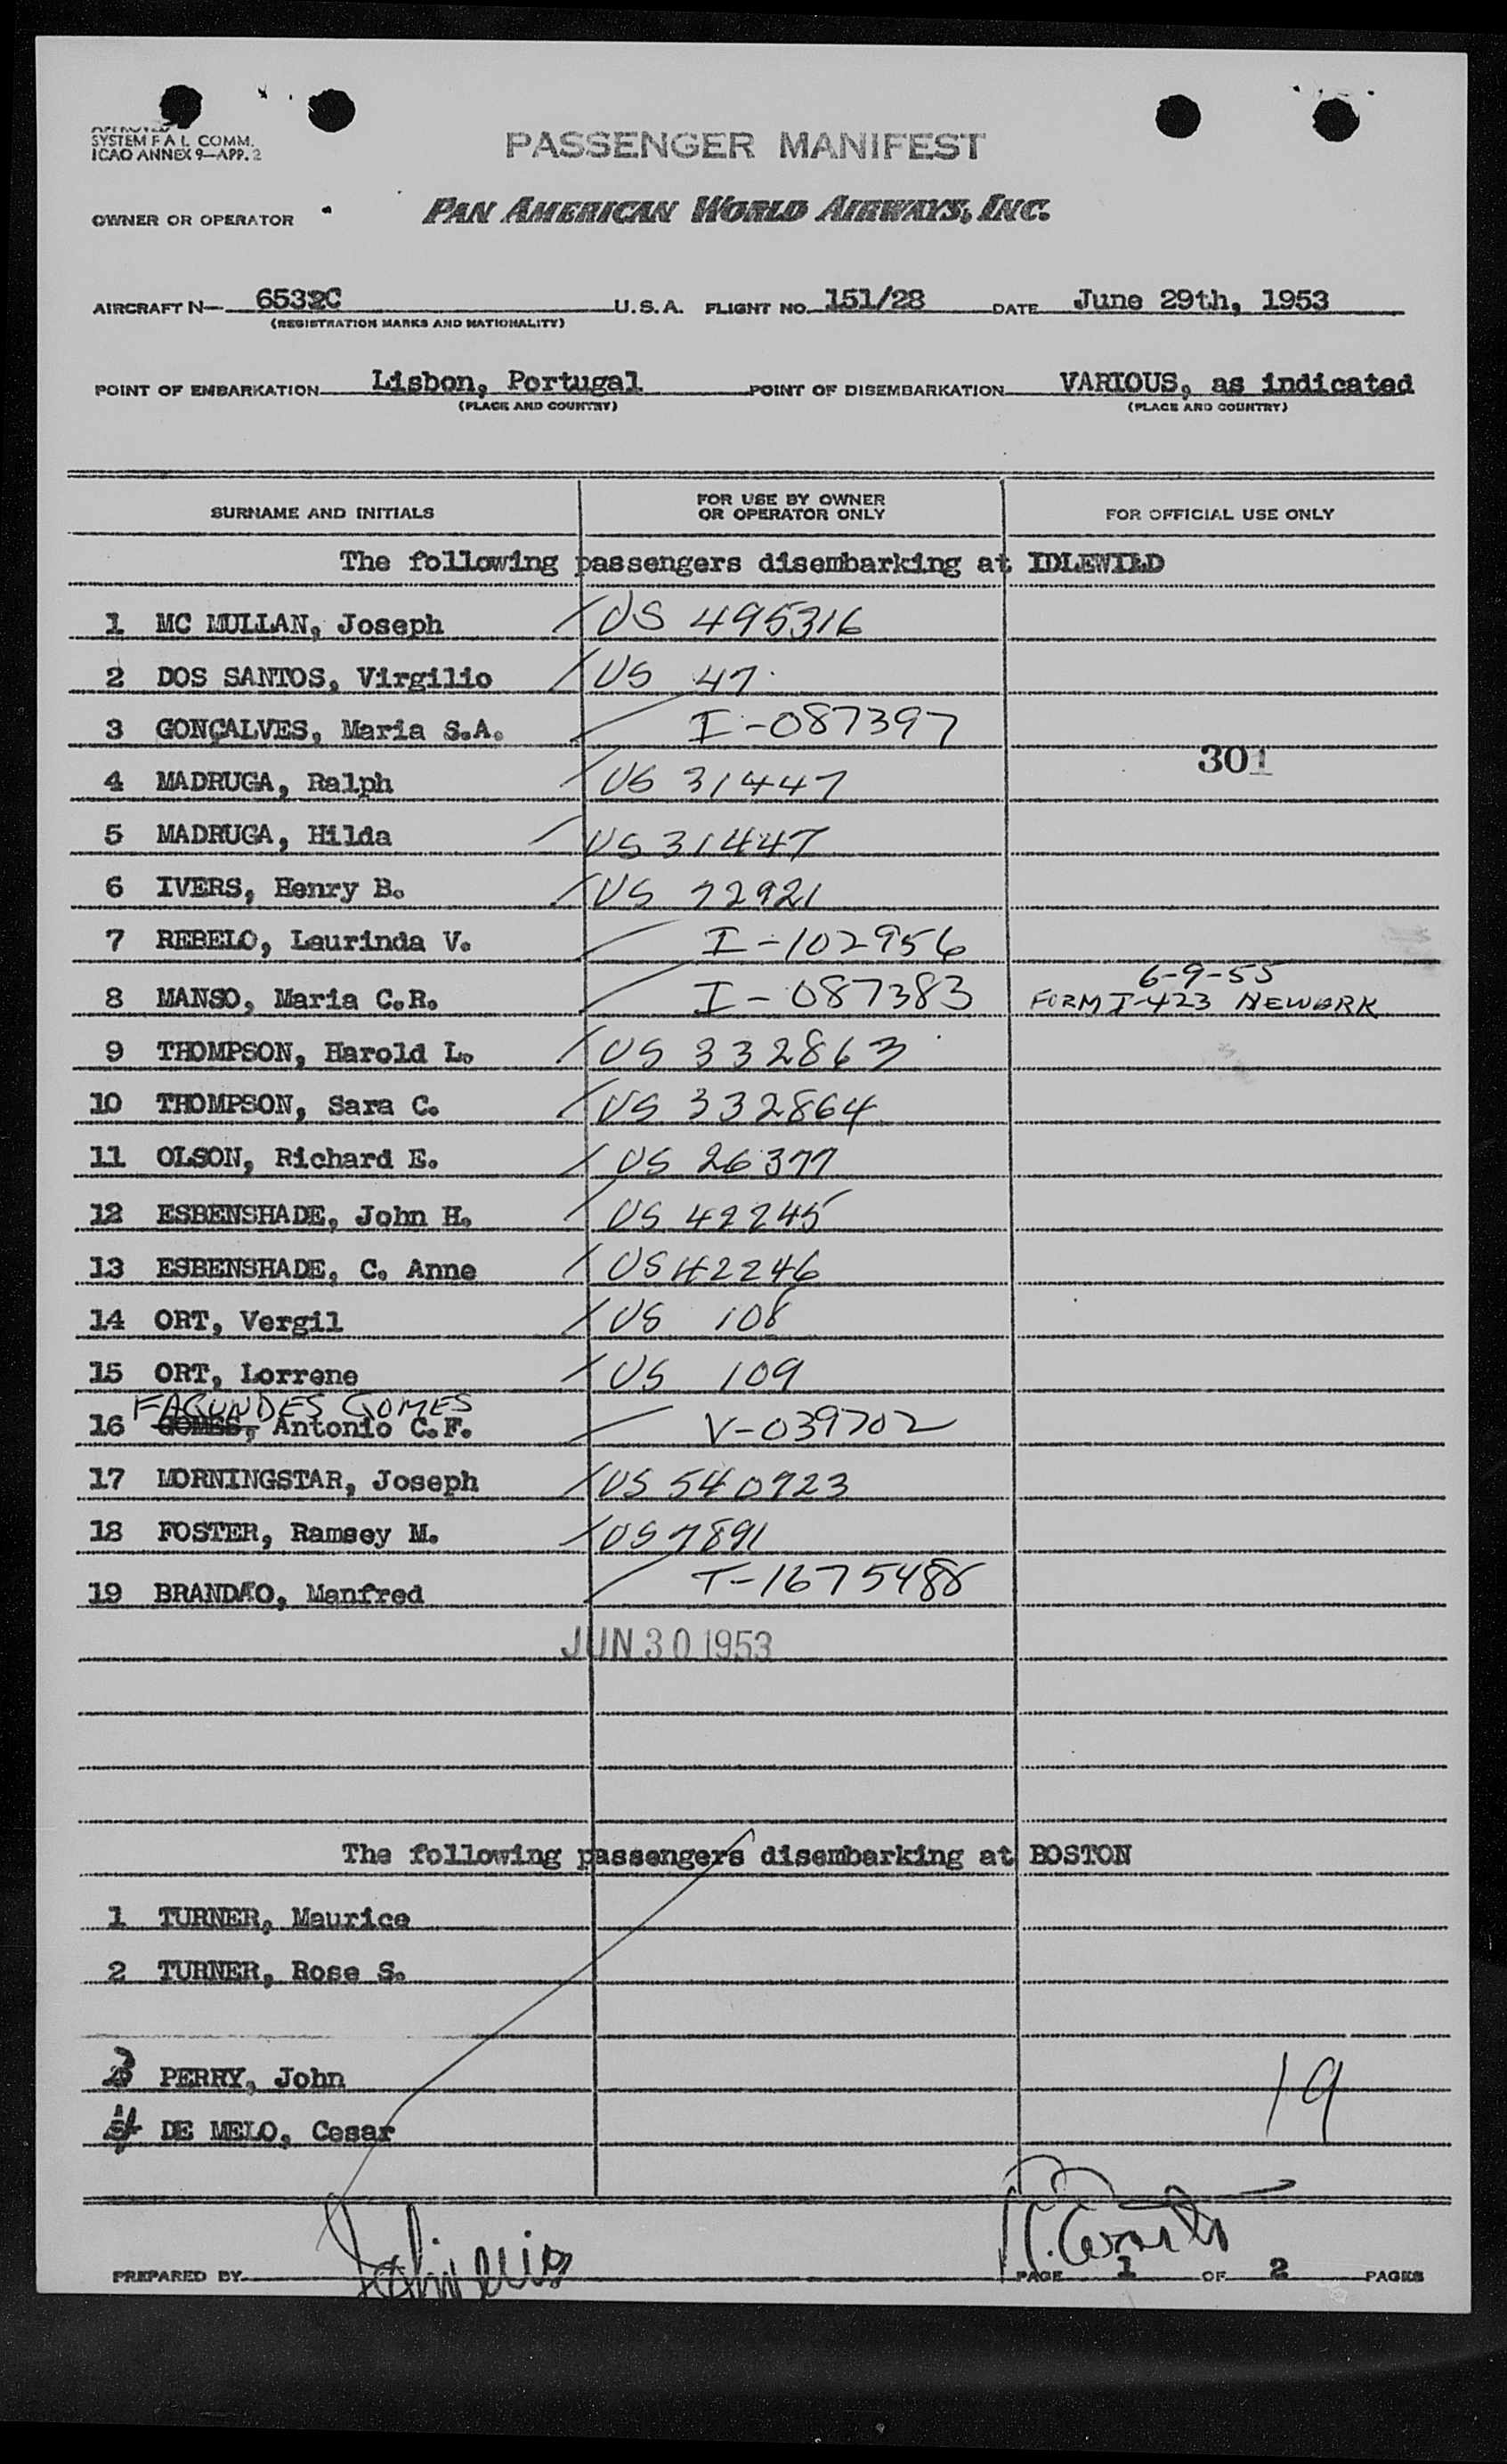 SYSTEM F A L COMM.
ICAO ANNEX 9—APP. 2
PASSENGER MANIFEST
OWNER OR OPERATOR
PAN AMERICAN WORLD AIRWAYS, INC.
AIRCRAFT N— 6532C U.S.A. FLIGHT NO. 151/28 DATE June 29th, 1953
(REGISTRATION MARKS AND NATIONALITY)
POINT OF EMBARKATION Lisbon, Portugal POINT OF DISEMBARKATION VARIOUS, as indicated
(PLACE AND COUNTRY) (PLACE AND COUNTRY)
SURNAME AND INITIALS FOR USE BY OWNER OR OPERATOR ONLY FOR OFFICIAL USE ONLY
The following passengers disembarking at IDLEWILD
1 MC MULLAN, Joseph US 495316
2 DOS SANTOS, Virgilio US 47
3 GONÇALVES, Maria S.A. I-087397
301
4 MADRUGA, Ralph US 31447
5 MADRUGA, Hilda US 31447
6 IVERS, Henry B. US 72921
7 REBELO, Laurinda V. I-102956
6-9-55
8 MANSO, Maria C.R. I-087383 FORM I-423 NEWARK
9 THOMPSON, Harold L. US 332863
10 THOMPSON, Sara C. US 332864
11 OLSON, Richard E. US 26377
12 ESBENSHADE, John H. US 42245
13 ESBENSHADE, C. Anne US 42246
14 ORT, Vergil US 108
15 ORT, Lorrene US 109
FAGUNDES GOMES
16 GOMES, Antonio C.F. V-039702
17 MORNINGSTAR, Joseph US 540923
18 FOSTER, Ramsey M. US 7891
19 BRANDAO, Manfred T-1675488
JUN 30 1953
The following passengers disembarking at BOSTON
1 TURNER, Maurice
2 TURNER, Rose S.
3 PERRY, John
4 DE MELO, Cesar
19
PREPARED BY PAGE 1 OF 2 PAGES